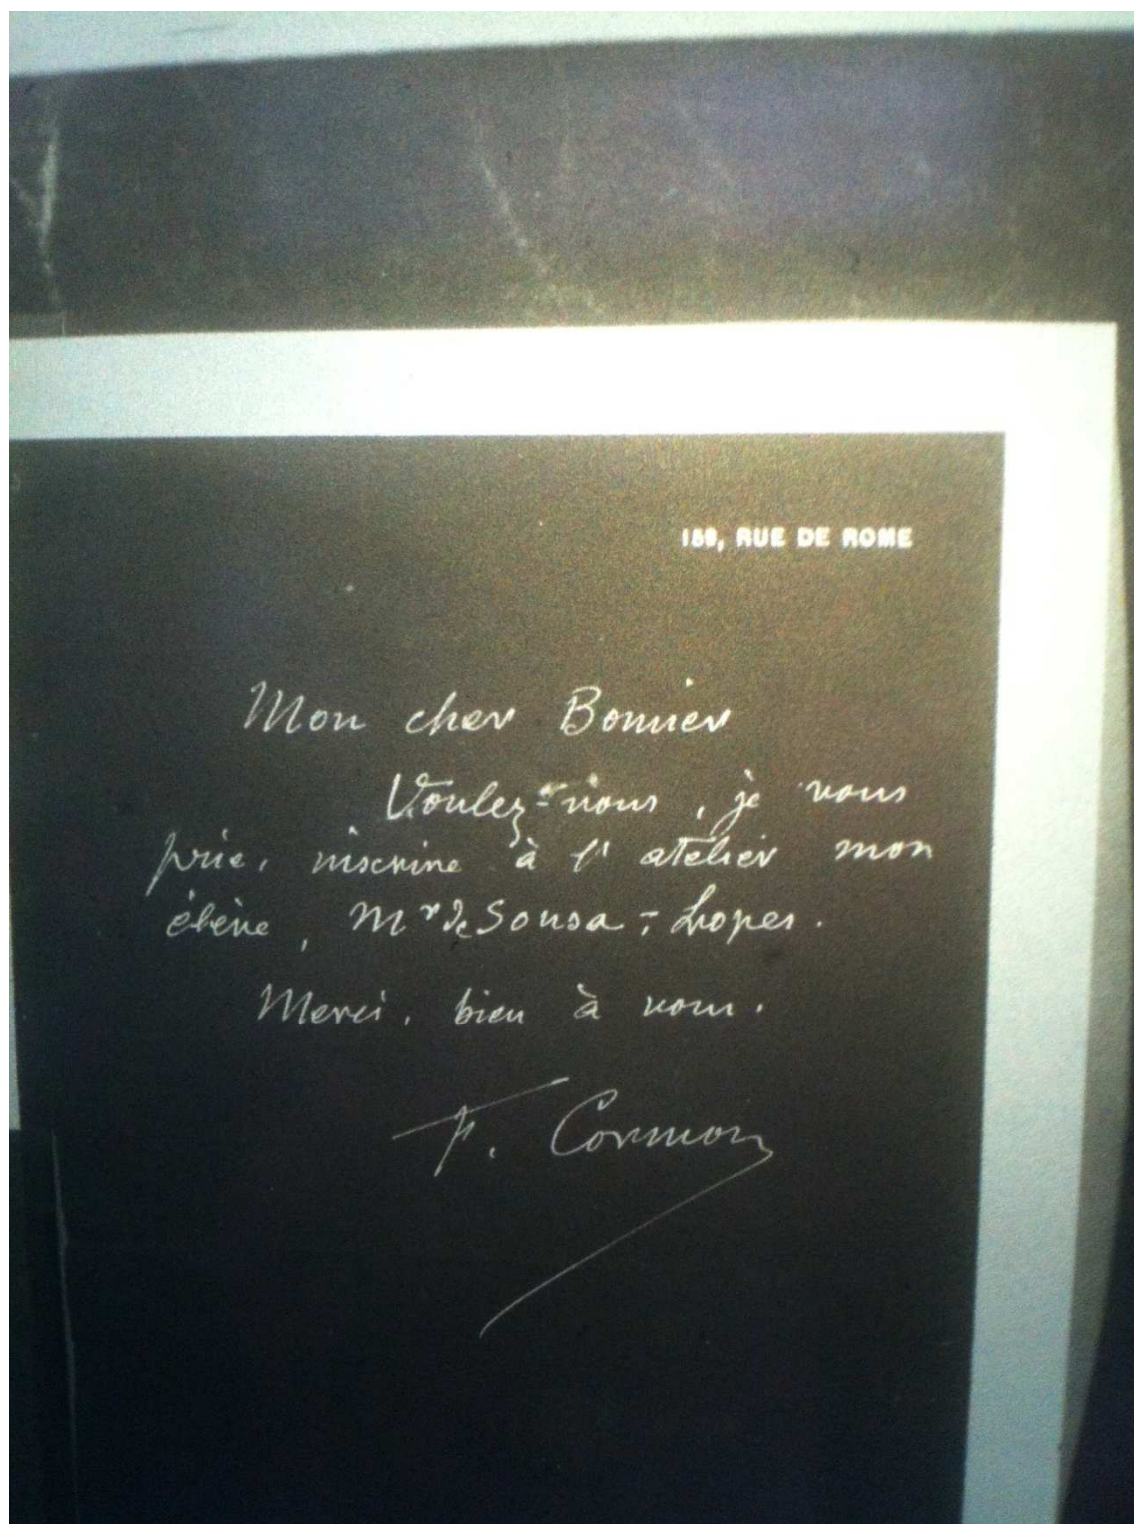 159, RUE DE ROME
Mon cher Bonnier
Voulez-vous, je vous
prie, inscrire à l'atelier mon
élève, Mr de Sousa-Lopes.
Merci, bien à vous.
F. Cormon